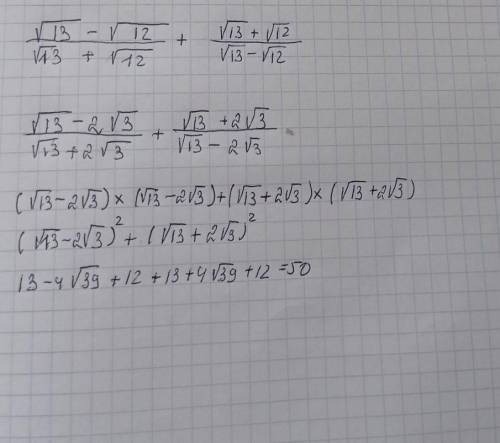 (√13 - √12)/(√13 + √12) + (√13 + √12)/(√13 - √12)
(√13 - 2√3)/(√13 + 2√3) + (√13 + 2√3)/(√13 - 2√3)
(√13 - 2√3) × (√13 - 2√3) + (√13 + 2√3) × (√13 + 2√3)
(√13 - 2√3)² + (√13 + 2√3)²
13 - 4√39 + 12 + 13 + 4√39 + 12 = 50